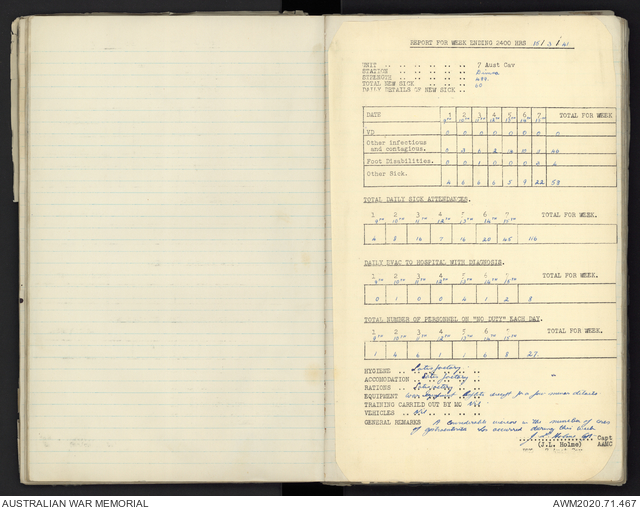 REPORT FOR WEEK ENDING 2400 HRS 15/3/41
UNIT .. .. .. .. .. .. .. 7 Aust Cav
STATION .. .. .. .. .. ..
STRENGTH .. .. .. .. .. ..
TOTAL NEW SICK .. .. .. ..
DAILY DETAILS OF NEW SICK ..
DATE 1 2 3 4 5 6 7 TOTAL FOR WEEK
9TH 10TH 11TH 12TH 13TH 14TH 15TH
VD 0 0 0 0 0 0 0 0
Other infectious
and contagious.
Foot Disabilities. 0 0 1 0 0 0
Other Sick.
4 6 6 6 5 9 22 58
TOTAL DAILY SICK ATTENDANCES.
1 2 3 4 5 6 7 TOTAL FOR WEEK.
9TH 10TH 11TH 12TH 13TH 14TH 15TH
4 8 16 7 16 20 45 116
DAILY EVAC TO HOSPITAL WITH DIAGNOSIS.
1 2 3 4 5 6 7 TOTAL FOR WEEK.
9TH 10TH 11TH 12TH 13TH 14TH 15TH
0 1 0 0 4 1 2 8
TOTAL NUMBER OF PERSONNEL ON "NO DUTY" EACH DAY.
1 2 3 4 5 6 7 TOTAL FOR WEEK.
9TH 10TH 11TH 12TH 13TH 14TH 15TH
1 4 6 1 1 6 8 27
HYGIENE .. Satisfactory
ACCOMODATION .. Satisfactory
RATIONS .. Satisfactory
EQUIPMENT except for a few minor details
TRAINING CARRIED OUT BY MO Nil
VEHICLES .. Nil
GENERAL REMARKS A considerable increase in the number of cases
of gastroenteritis has occurred during this week
Capt
(J.L. Holme) AAMC
AUSTRALIAN WAR MEMORIAL
AWM2020.71.467